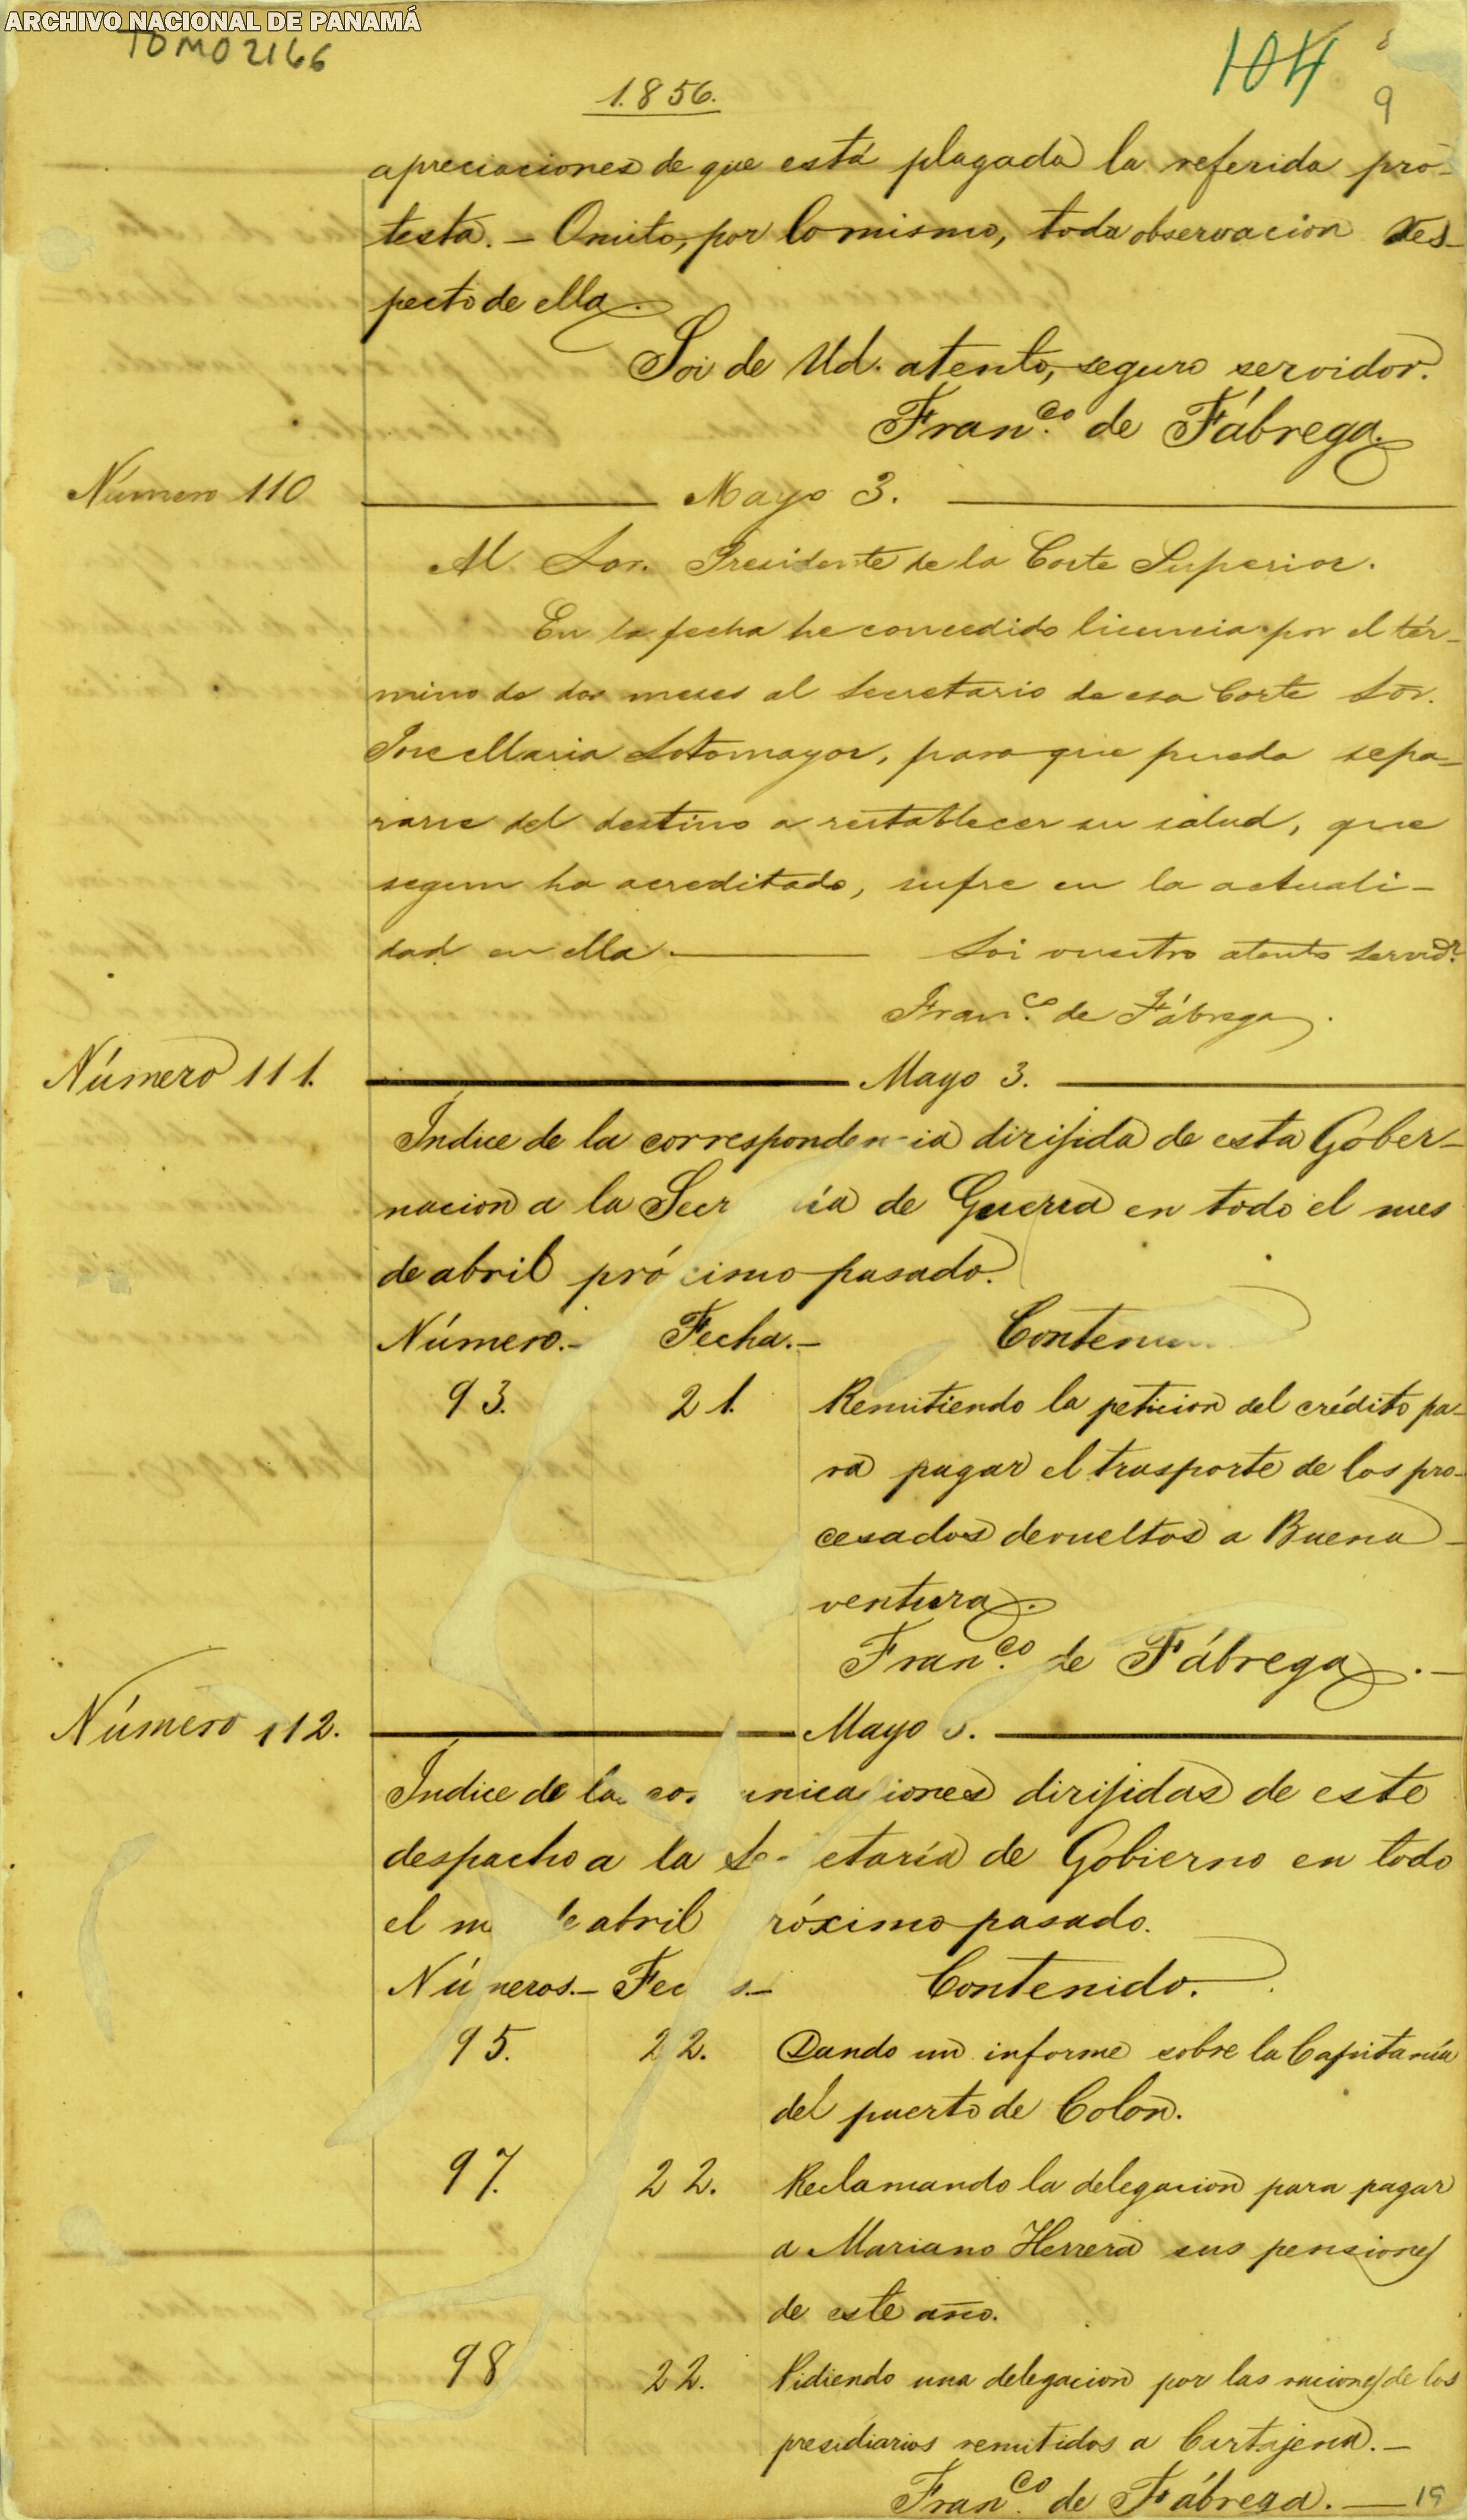 ARCHIVO NACIONAL DE PANAMÁ
TOMO 2166
104
9
1856.
apreciaciones de que está plagada la referida pro-
testa. - Omito, por lo mismo, toda observacion res-
pecto de ella.
Soi de Ud. atento, seguro servidor.
Fran.co de Fábrega.
Número 110 Mayo 3.
Al Sor. Presidente de la Corte Superior.
En la fecha he concedido licencia por el tér-
mino de dos meses al Secretario de esa Corte Sor.
Jose Maria Sotomayor, para que pueda sepa-
rarse del destino a restablecer su salud, que
segun ha acreditado, sufre en la actuali-
dad en ella. Soi vuestro atento servidr.
Fran.co de Fábrega.
Número 111. Mayo 3.
Índice de la correspondencia dirijida de esta Gober-
nacion a la Secr ía de Guerra en todo el mes
de abril próximo pasado.
Número.- Fecha.- Conteni
93. 21. Remitiendo la peticion del crédito pa-
ra pagar el trasporte de los pro-
cesados devueltos a Buena-
ventura.
Fran.co de Fábrega.-
Número 112. Mayo 3.
Índice de las comunicaciones dirijidas de este
despacho a la Se etaría de Gobierno en todo
el m de abril róximo pasado.
Números.- Fec s.- Contenido.
95. 22. Dando un informe sobre la Capitanía
del puerto de Colon.
97. 22. Reclamando la delegacion para pagar
a Mariano Herrera sus pensiones
de este año.
98 22. Pidiendo una delegacion por las raciones de los
presidiarios remitidos a Cartajena.-
Fran.co de Fábrega.- 19